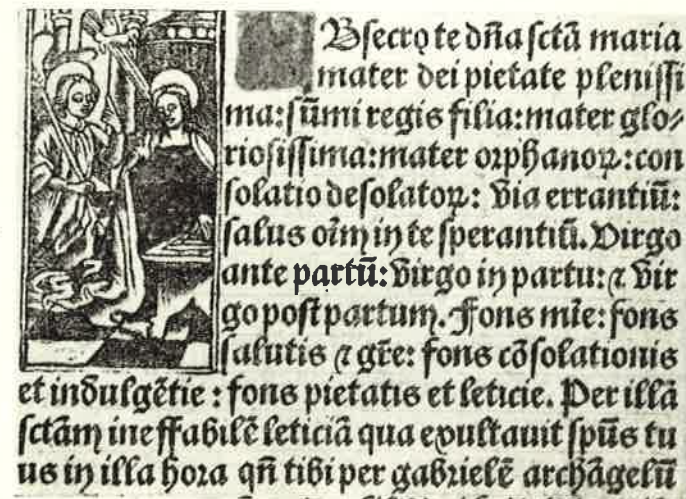 Bsecro te dña sctã maria
mater dei pietate plenissi
ma: sũmi regis filia: mater glo⸗
riosissima: mater orphanoꝝ: con
solatio desolatoꝝ: via errantiũ:
salus oĩm in te sperantiũ. Virgo
ante partũ: virgo in partu: ⁊ vir
go post partum. Fons mĩe: fons
salutis ⁊ grẽ: fons cõsolationis
et indulgẽtie: fons pietatis et leticie. Per illã
sctãm ineffabilẽ leticiã qua exultauit spũs tu
us in illa hora qñ tibi per gabrielẽ archãgelũ